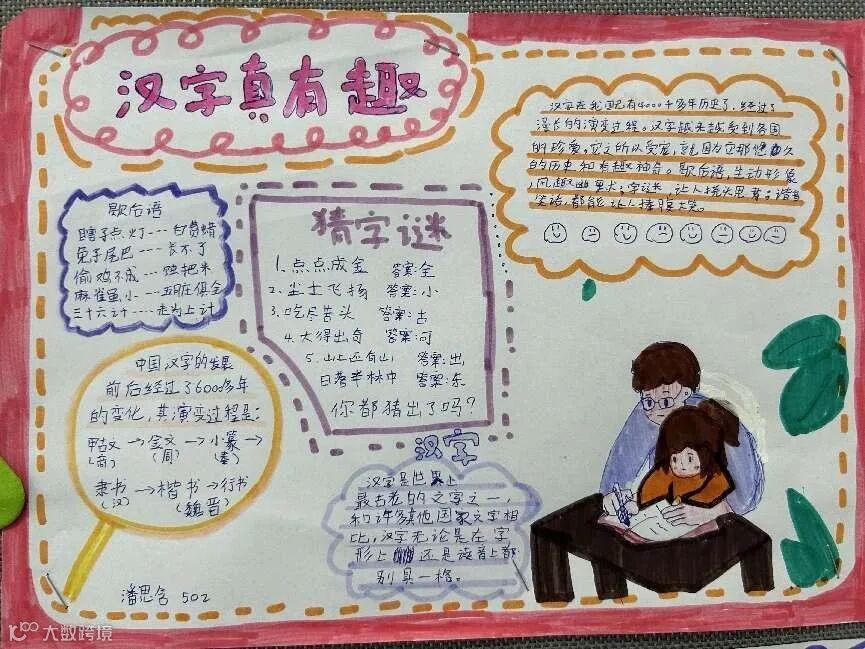 汉字真有趣
歇后语
瞎子点灯---白费蜡
兔子尾巴---长不了
偷鸡不成---蚀把米
麻雀虽小---五脏俱全
三十六计---走为上计
猜字谜
1.点点成金 答案:全
2.尘土飞扬 答案:小
3.吃尽苦头 答案:古
4.大得出奇 答案:可
5.山上还有山 答案:出
日落半林中 答案:东
你都猜出了吗?
汉字在我国已有4000千多年历史了,经过了
漫长的演变过程。汉字越来越受到各国
的珍爱。它之所以受宠,就因为它那悠久
的历史和有趣神奇。歇后语,生动形象
,风趣幽默;字谜,让人挠头思考。谐音
笑话,都能让人捧腹大笑。
中国汉字的发展
前后经过了6000多年
的变化,其演变过程是:
甲古文→金文→小篆→
(商) (周) (秦)
隶书→楷书→行书
(汉) (魏晋)
汉字
汉字是世界上
最古老的文字之一,
和许多其他国家文字相
比,汉字无论是在字
形上还是读音上都
别具一格。
潘思含 502
大数跨境